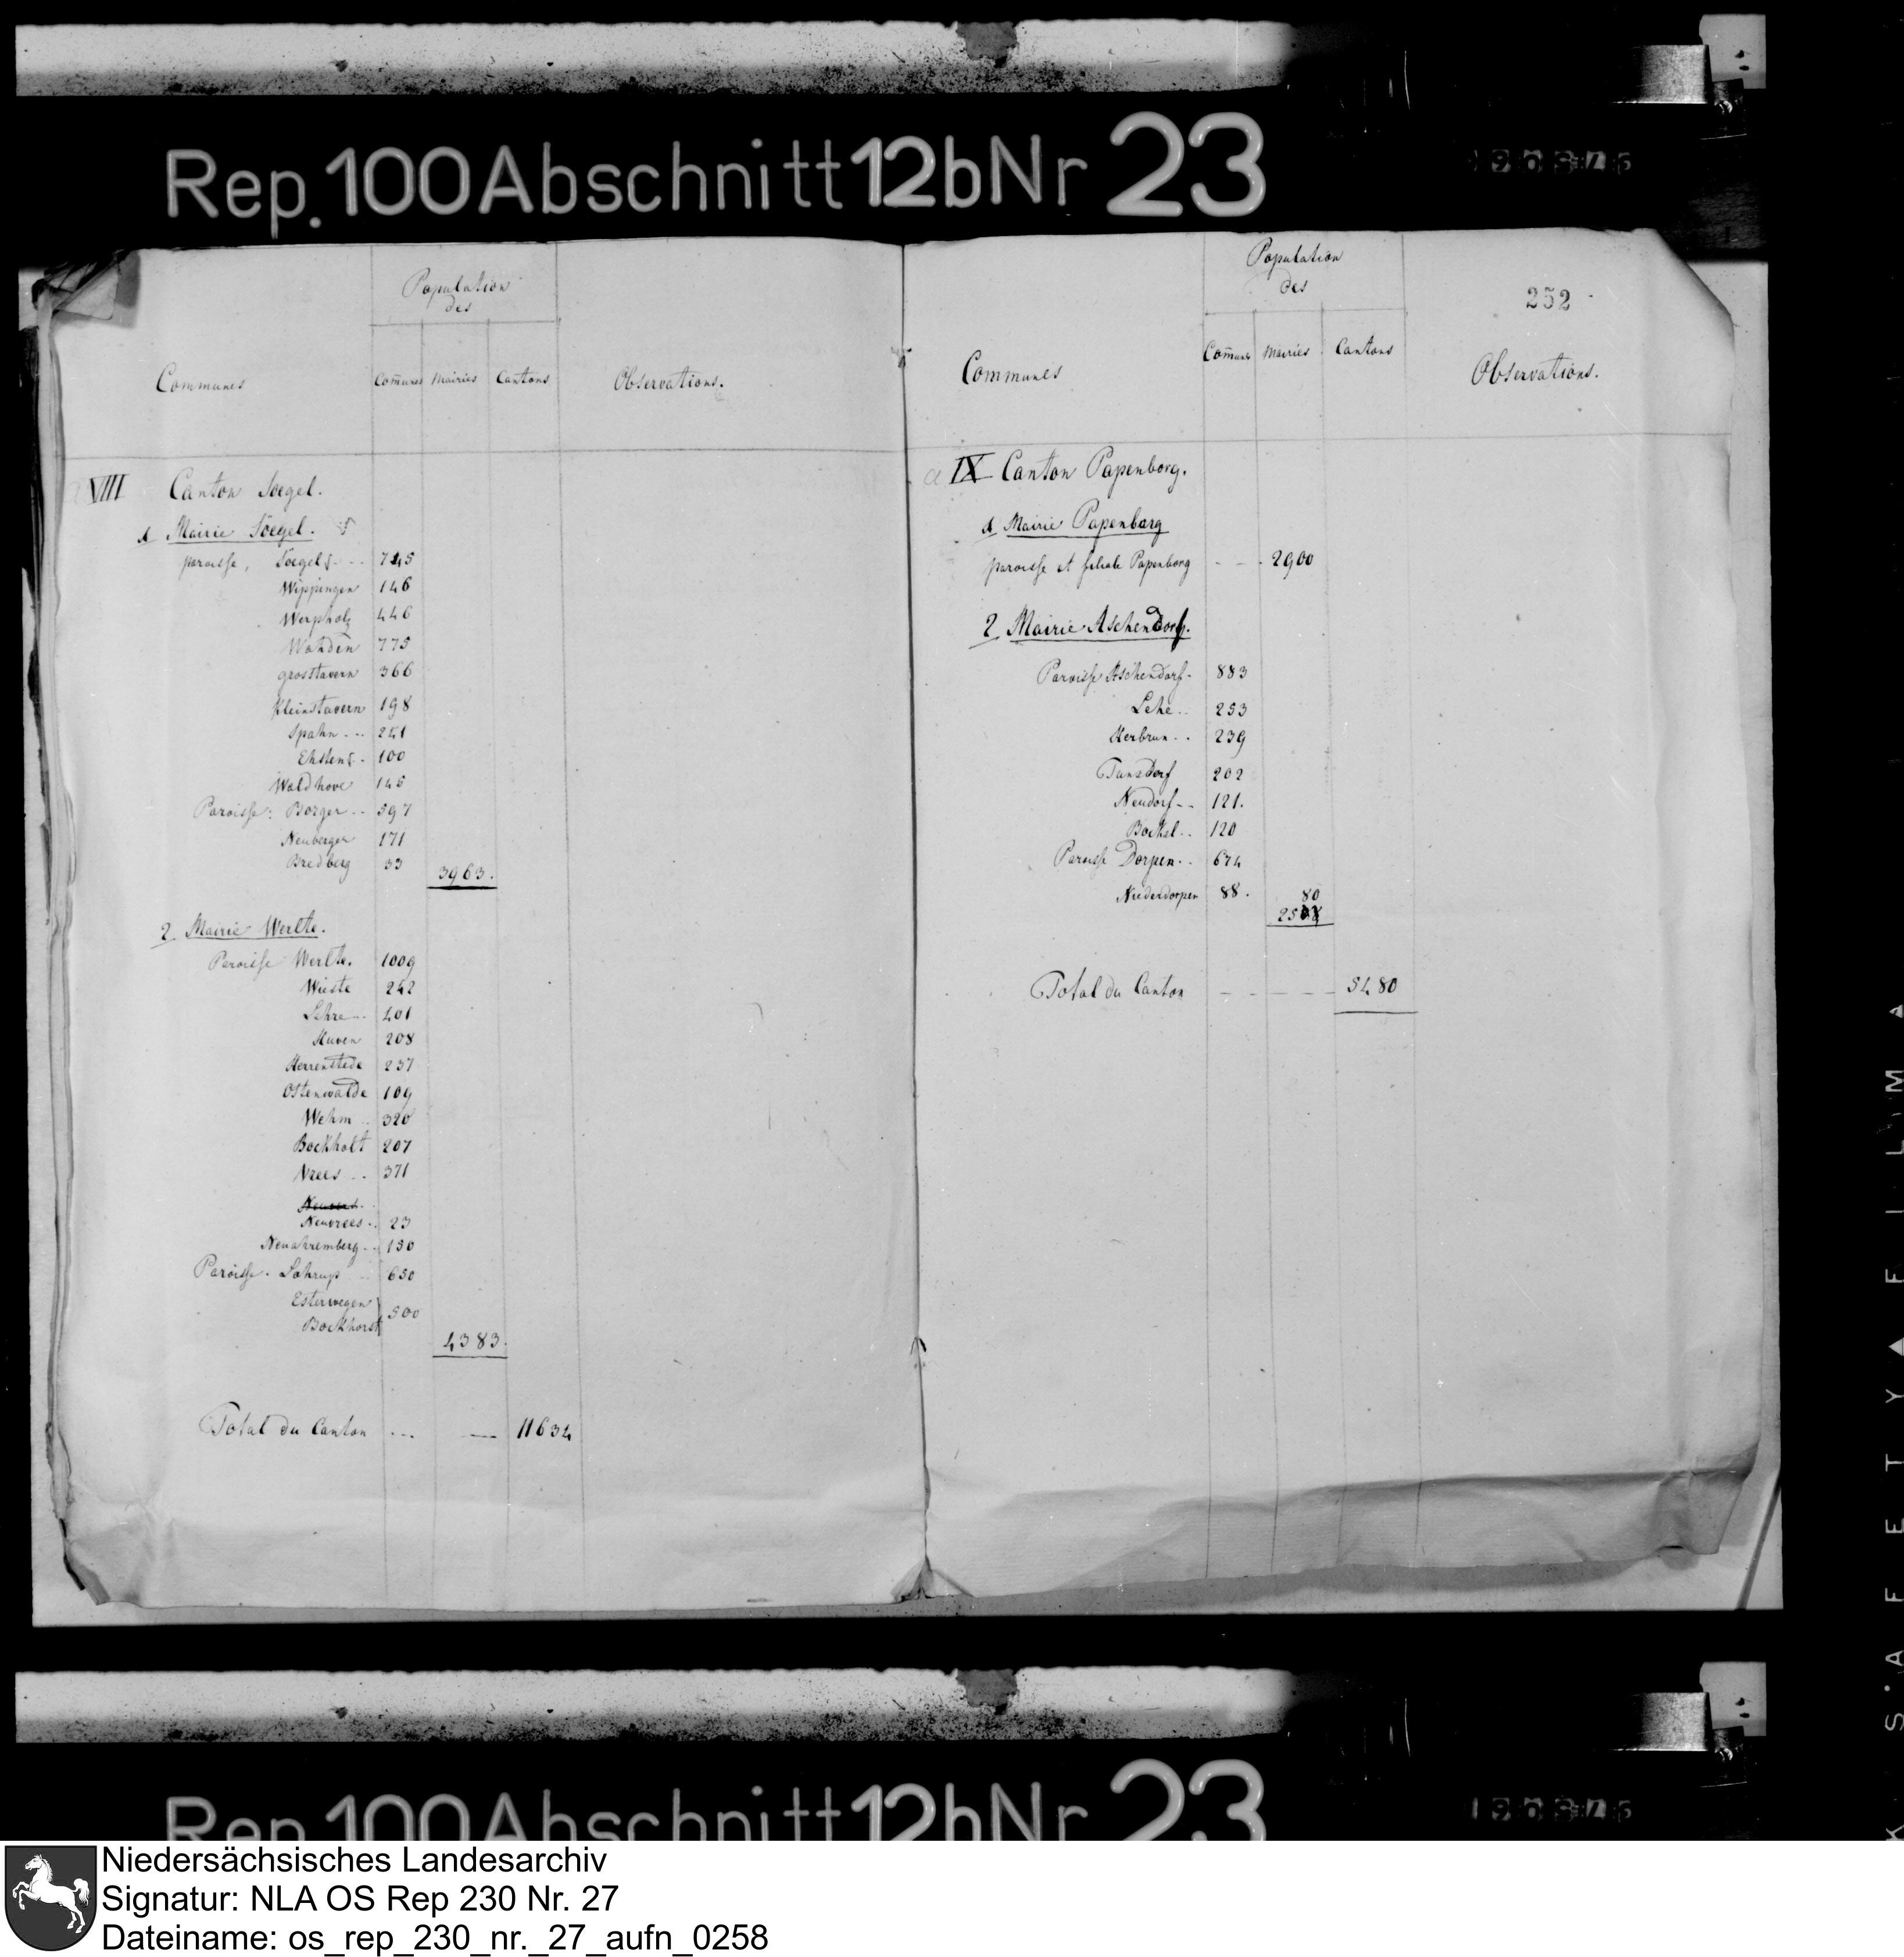 Rep. 100 Abschnitt 12b Nr 23
Population
des
Communes
Comunes Mairies Cantons
Observations.
VIII Canton Soegel.
1 Mairie Söegel.
paroisse, Soegel 745
Wippingen 146
Werpholz 446
Wahden 775
grosstavern 366
Kleinstavern 198
Spahn 241
Ehsten 100
Waldhove 145
Paroisse: Borger 597
Neuberger 171
Bredberg 33
3963.
2 Mairie Werlte.
Paroisse Werlte. 1009
Wieste 242
Lehre 401
Huven 208
Herrenstede 237
Ostenwalde 109
Wehm 320
Bockholt 207
Vrees 371
Neuvrees 23
Neuahremberg 150
Paroisse. Lohrup 650
Esterwegen
Bockhorst 500
4383.
Total du Canton 11634
Population
des
252
Communes
Comunes Mairies Cantons
Observations.
IX Canton Papenborg.
1 Mairie Papenburg
paroisse et filiale Papenborg 2900
2. Mairie Aschendorf.
Paroisse Aschendorf 883
Lehe 253
Herbrun 239
Tunxdorf 202
Neudorf 121.
Bockel 120
Paroisse Dorpen 674
Niederdorpen 88.
80
Total du Canton 5480
SAFETY FILM
Rep. 100 Abschnitt 12b Nr 23
Niedersächsisches Landesarchiv
Signatur: NLA OS Rep 230 Nr. 27
Dateiname: os_rep_230_nr._27_aufn_0258